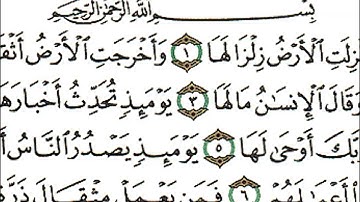 بِسْمِ اللَّهِ الرَّحْمَٰنِ الرَّحِيمِ
زِلَتِ الْأَرْضُ زِلْزَالَهَا ١ وَأَخْرَجَتِ الْأَرْضُ أَثْقَا
وَقَالَ الْإِنسَانُ مَا لَهَا ٣ يَوْمَئِذٍ تُحَدِّثُ أَخْبَارَهَا
بَّكَ أَوْحَىٰ لَهَا ٥ يَوْمَئِذٍ يَصْدُرُ النَّاسُ أَ
أَعْمَالَهُمْ ٦ فَمَن يَعْمَلْ مِثْقَالَ ذَرَّةٍ